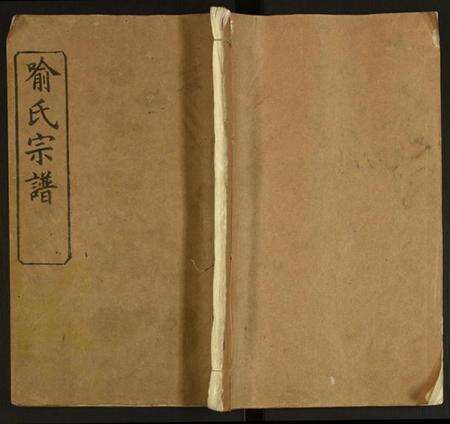 喻氏宗譜